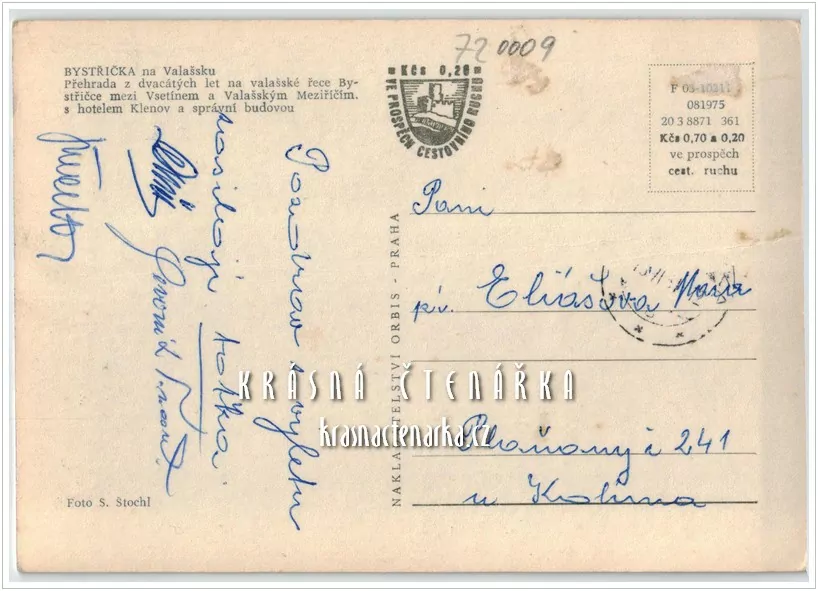 BYSTŘIČKA na Valašsku
Přehrada z dvacátých let na valašské řece By-
střičce mezi Vsetínem a Valašským Meziříčím.
s hotelem Klenov a správní budovou
720009
Kčs 0,20
VE PROSPĚCH CESTOVNÍHO RUCHU
F 05-10211
081975
20 3 8871 361
Kčs 0,70 a 0,20
ve prospěch
cest. ruchu
Pozdrav z výletu
posílají
Paní
Eliášova
Plaňany 241
u Kolína
NAKLADATELSTVÍ ORBIS - PRAHA
KRÁSNÁ ČTENÁŘKA
krasnactenarka.cz
Foto S. Štochl